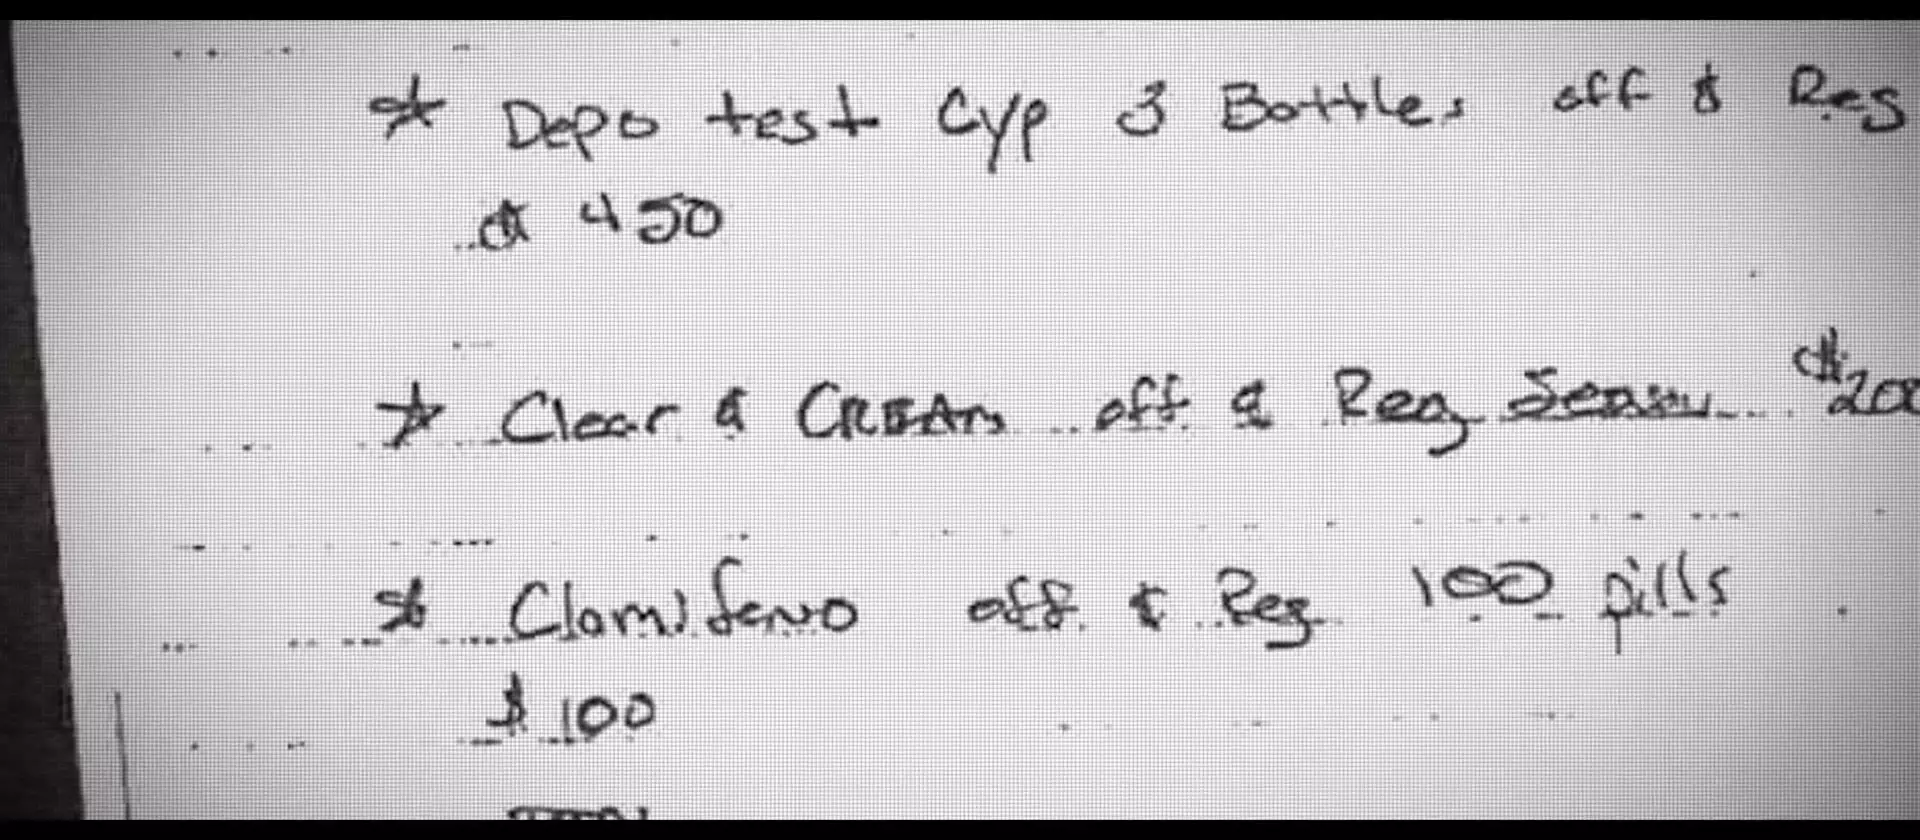 * Depo test Cyp 3 Bottles off & Reg
$ 450
* Clear & CREAm off & Reg Season $200
* Clomifeno off & Reg 100 pills
$ 100